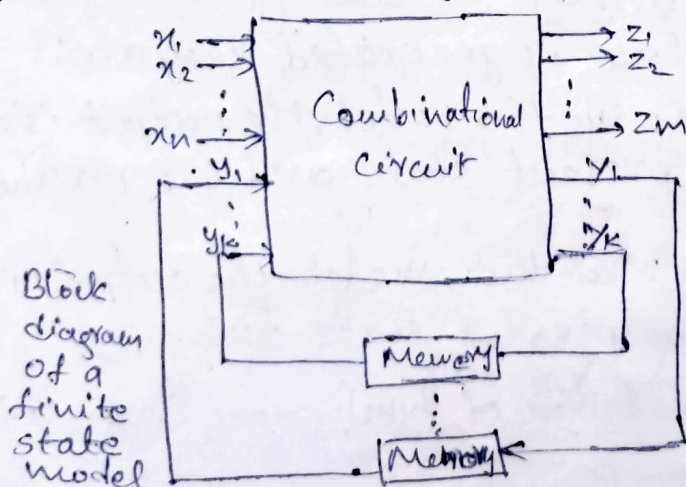 x1
x2
xn
y1
yk
Combinational
Circuit
Z1
Z2
Zm
Y1
Yk
Memory
Memory
Block
diagram
of a
finite
state
model